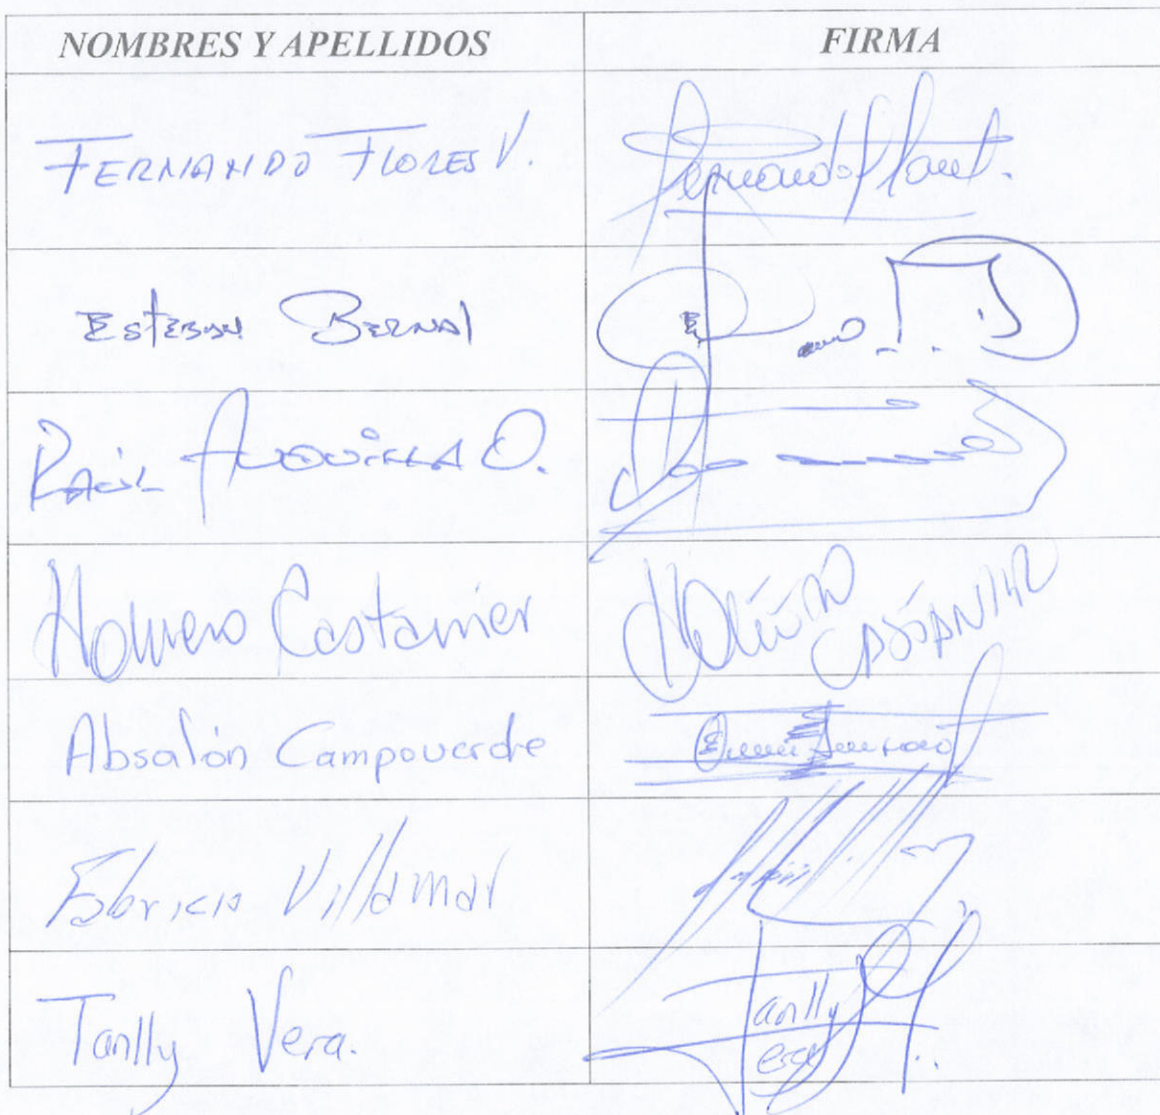 NOMBRES Y APELLIDOS FIRMA
FERNANDO FLORES V. Fernando
Esteban Bernal
Raúl Auquilla O.
Homero Castanier Homero Castanier
Absalón Campoverde
Fabricio Villamar
Tanlly Vera. Tanlly
Vera